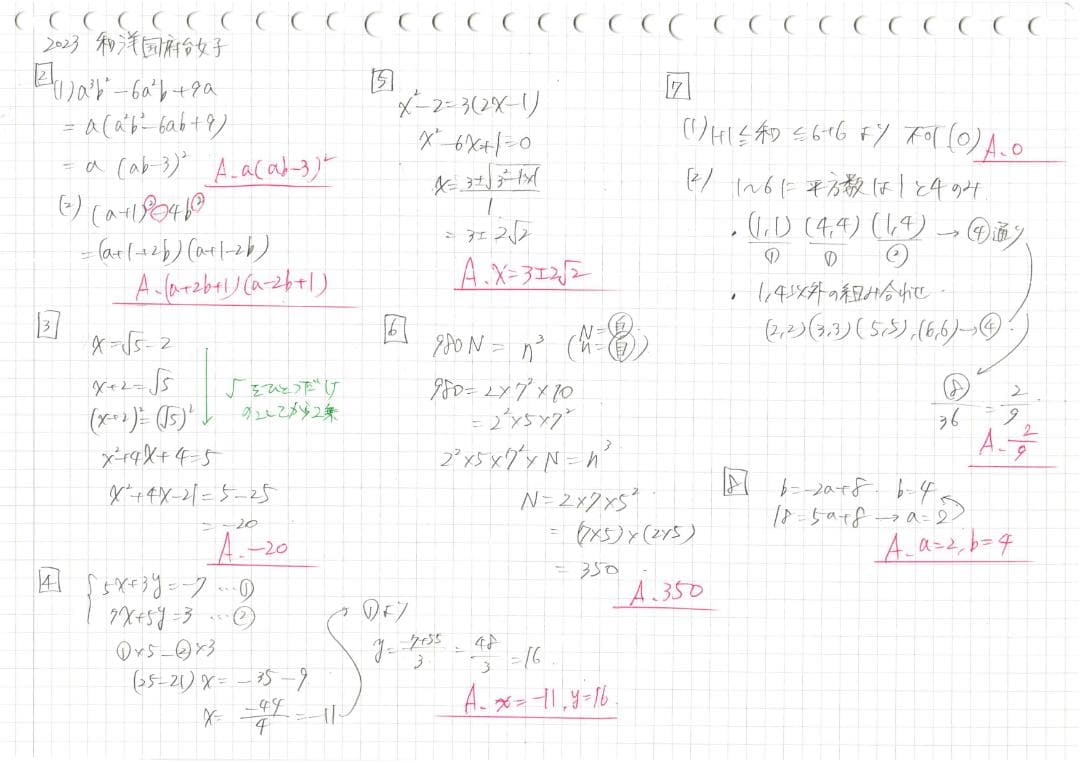 2023 和洋国府台女子
2
(1) a³b² - 6a²b + 9a
= a(a²b² - 6ab + 9)
= a (ab-3)²
A. a(ab-3)²
(2) (a+1)² - 4b²
= (a+1+2b)(a+1-2b)
A. (a+2b+1)(a-2b+1)
3
x = √5 - 2
x+2 = √5
(x+2)² = (√5)²
√をひとつだけ
のこしてから2乗
x²+4x+4 = 5
x²+4x-21 = 5-25
= -20
A. -20
4
5x+3y = -7 … ①
7x+5y = 3 … ②
①×5 - ②×3
(25-21) x = -35 - 9
x = -44/4 = -11
①より
y = -7+55/3 = 48/3 = 16
A. x = -11, y = 16
5
x² - 2 = 3(2x-1)
x² - 6x + 1 = 0
x = 3±√3²-1×1/1
= 3±2√2
A. x = 3±2√2
6
980N = n³ (N=自 n=自)
980 = 2×7²×10
= 2²×5×7²
2²×5×7²×N = n³
N = 2×7×5²
= (7×5)×(2×5)
= 350
A. 350
7
(1) 1+1 ≦ 和 ≦ 6+6 より 不可 (0)
A. 0
(2) 1~6に平方数は1と4のみ
・(1,1) (4,4) (1,4) → ④通り
① ① ②
・1,4以外の組み合わせ
(2,2) (3,3) (5,5), (6,6) → ④
⑧/36 = 2/9
A. 2/9
8
b = -2a+8. b = 4
18 = 5a+8 → a = 2
A. a=2, b=4